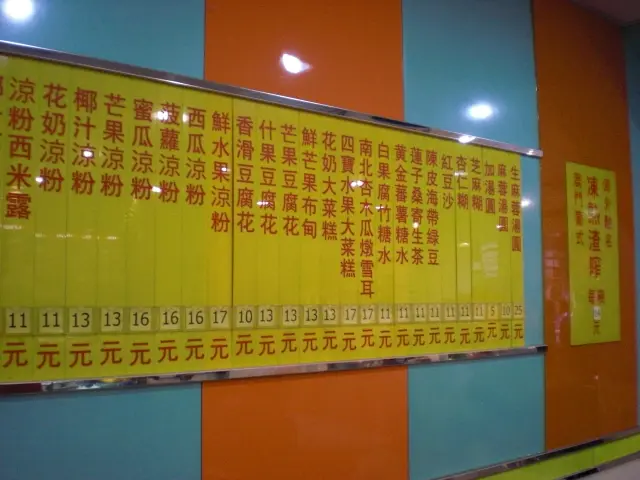 生麻蓉湯圓 25元
麻蓉湯圓 10元
加湯圓 5元
芝麻糊 11元
杏仁糊 11元
紅豆沙 11元
陳皮海帶綠豆 11元
蓮子桑寄生茶 11元
黃金蕃薯糖水 11元
白果腐竹糖水 11元
南北杏木瓜燉雪耳 17元
四寶水果大菜糕 17元
花奶大菜糕 13元
鮮芒果布甸 13元
芒果豆腐花 13元
什果豆腐花 13元
香滑豆腐花 10元
鮮水果涼粉 17元
西瓜涼粉 16元
菠蘿涼粉 16元
蜜瓜涼粉 16元
芒果涼粉 13元
椰汁涼粉 13元
花奶涼粉 11元
涼粉西米露 11元